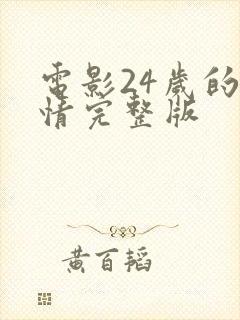 電影24歲的
情完整版
黃百韜